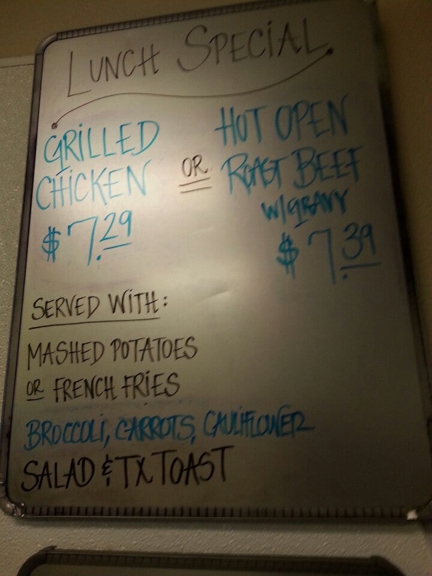 LUNCH SPECIAL
GRILLED
CHICKEN
$7.29
OR
HOT OPEN
ROAST BEEF
W/GRAVY
$7.39
SERVED WITH:
MASHED POTATOES
OR FRENCH FRIES
BROCCOLI, CARROTS, CAULIFLOWER
SALAD & TX TOAST